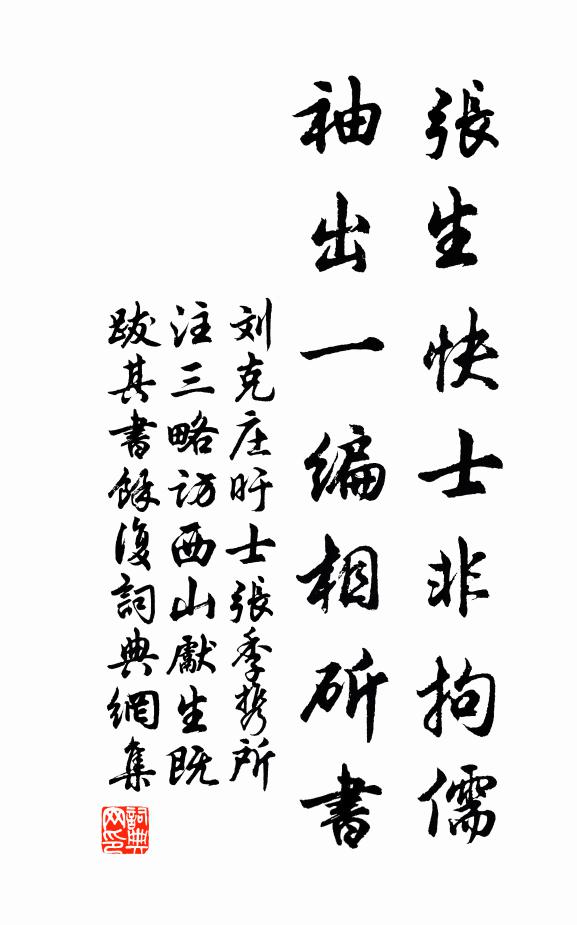 張生快士非拘儒
袖出一编相斫書
刘克庄旴士張季携所
注三略访西山獻生既
跋其書餘復詞典網集
詞典网印